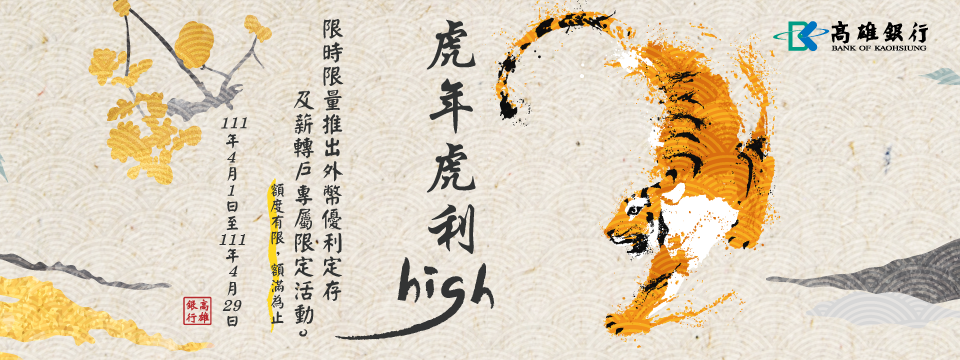 高雄銀行
BANK OF KAOHSIUNG
虎年虎利high
限時限量推出外幣優利定存
及薪轉戶專屬限定活動。
額度有限，額滿為止
111年4月1日至111年4月29日
高雄
銀行